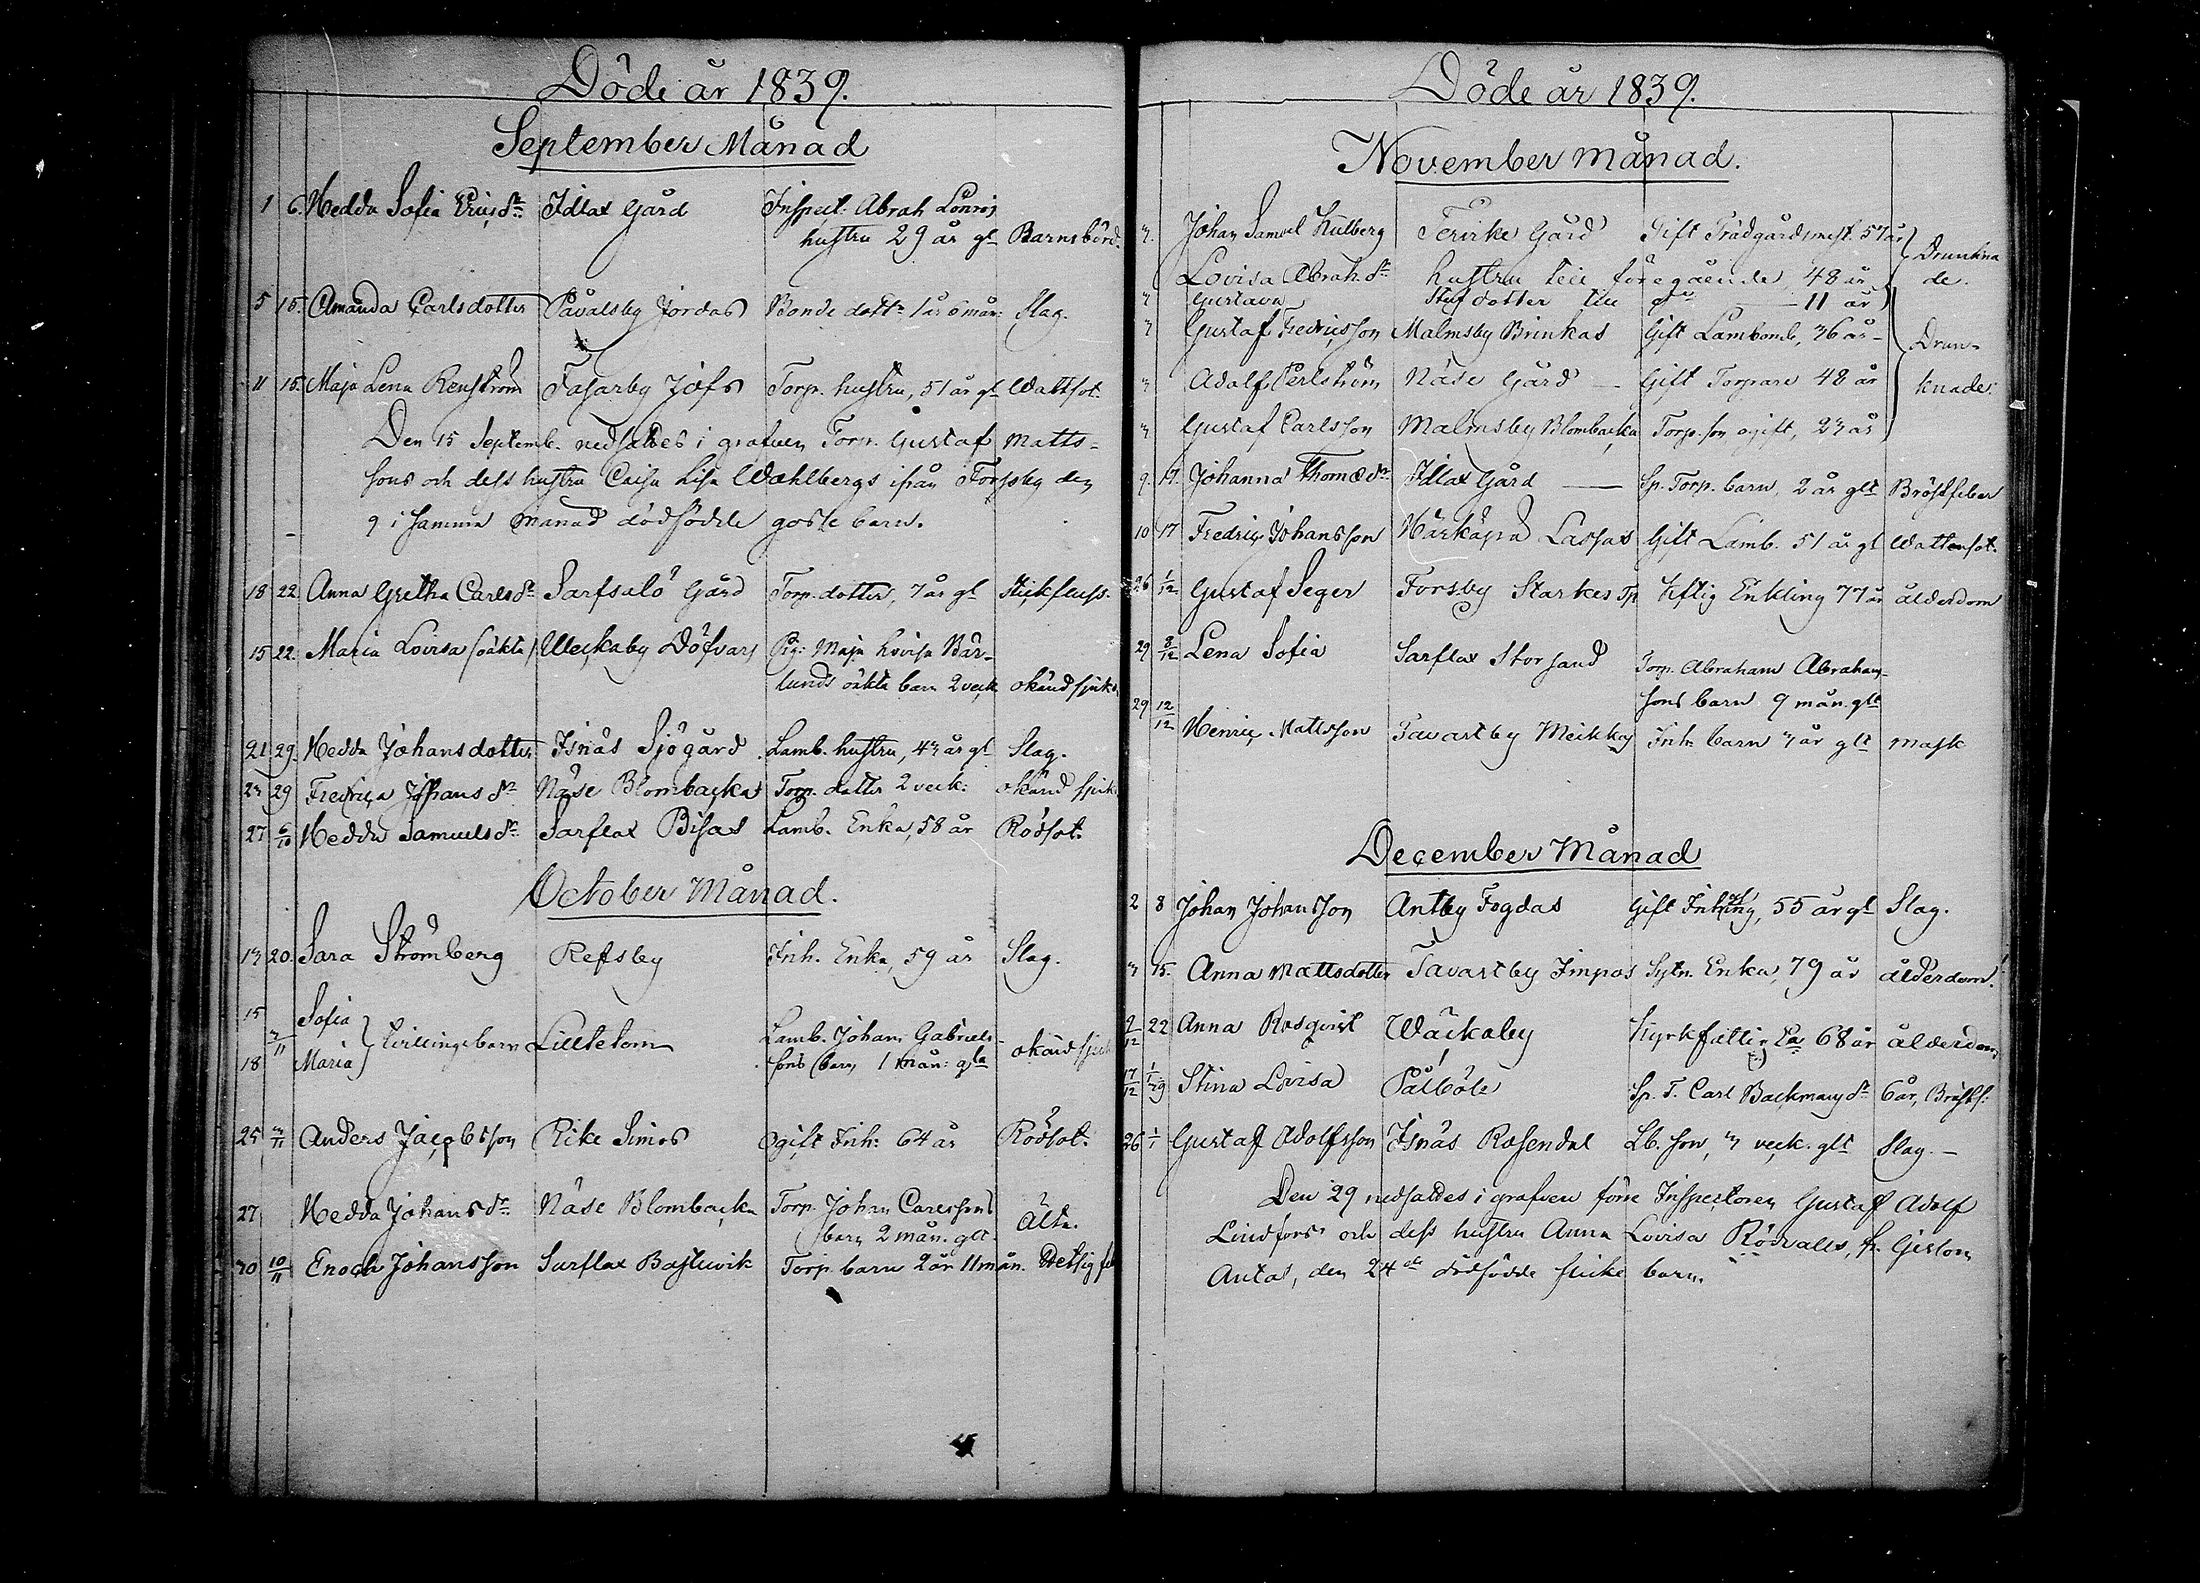 Döde år 1839.
September Månad
1 6. Hedda Sofia Ericsdr Idlax Gård Inspect: Abrah Lönros
hustru 29 år gl Barnsbörd.
5 15. Amanda Carlsdotter Påvalsby Jordas Bonde dottr 1 år 6 mån: Slag.
11 15. Maja Lena Renström Tasarby Jofs Torp. hustru, 51 år gl Wattsot.
Den 15 Septemb. nedsattes i grafven Torp. Gustaf Matts-
sons och dess hustru Caisa Lisa Wahlbergs ifrån Forsby den
9 i samma månad dödfödde gosse barn.
18 22. Anna Gretha Carlsdr Sarfsalö Gård Torp. dotter, 7 år gl Stickfluss.
15 22. Maria Lovisa (oäkta) Ulleckaby Döfvars Pig: Maja Lovisa Bär-
lunds oäkta barn 2 veck okänd sjuk
21 29. Hedda Johansdotter Isnäs Sjögård Lamb. hustru, 43 år gl Slag.
23 29 Fredrica Johansdr Näse Blombacka Torp. dotter 2 veck: okänd sjuk
27 6/10 Hedda Samuelsdr Sarflax Bisas Lamb. Enka, 58 år Rödsot.
October Månad.
13 20. Sara Strömberg Refsby Inh. Enka, 59 år Slag.
15 Sofia
3/11 Tvillingebarn Lilletom Lamb. Johan Gabriels-
18 Maria sons barn 1 mån: gla okänd sjuk
25 3/11 Anders Jacobsson Rike Simos Ogift Inh: 64 år Rödsot.
27 Hedda Johansdr Näse Blombacka Torp. Johan Carlssons
barn 2 mån. glt. Ält.
30 10/11 Enoch Johansson Sarflax Bastuvik Torp. barn 2 år 11 mån. Hetsig f
Döde år 1839.
November månad.
3. Johan Samuel Hulberg Tervike Gård Gift Trädgårdsmest. 57 år
Drunkna
Lovisa Abrah.dr hustru till föregående, 48 år de.
3 Gustava Stufdotter till 11 år
3 Gustaf Fredricsson Malmsby Brinkas Gift Lambonde, 36 år - Drun-
3 Adolf Perlström Näse Gård Gift Torpare 48 år knade.
3 Gustaf Carlsson Malmsby Blombacka Torp. son ogift, 23 år
9. 17. Johanna Thomædr Idlax Gård Sp. Torp. barn, 2 år glt Bröstfeber
10 17 Fredric Johansson Härkäpä Lassas Gift Lamb. 51 år gl Wattensot.
26 1/12 Gustaf Seger Forsby Starkes Tp Enkling 77 år ålderdom
29 8/12 Lena Sofia Sarflax Storsand Torp. Abraham Abrahams-
sons barn 9 mån. glt
29 12/12 Henric Mattsson Tavastby Meikkas Inh. barn 3 år glt mask
December Månad
2 8 Johan Johansson Antby Fogdas Gift Inhysing, 55 år gl Slag.
3 15. Anna Mattsdotter Tavastby Impos Sytn. Enka, 79 år ålderdom.
9/12 22 Anna Rosqvist Wäckaby Kyrkfattig Ea 68 år ålderdom
17/12 29 Stina Lovisa Pålböle Sp. T. Carl Backmans dr 6 år, Bröstf:
26 1/1 Gustaf Adolfsson Isnäs Rosendal Lb. son, 3 veck. glt Slag. -
Den 29 nedsattes i grafven förre Inspectoren Gustaf Adolf
Lindfors och dess hustru Anna Lovisa Rödvalls, fr. Gislom
Antas, den 24de dödfödde flicke barn.